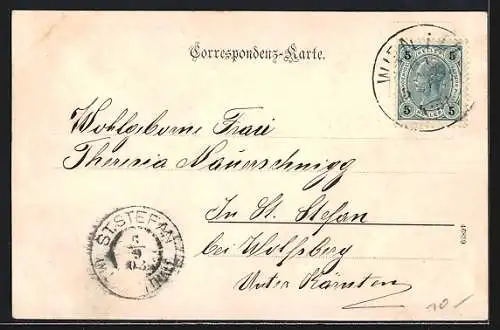 Correspondenz-Karte.
WIEN
5 5
HELLER
5 5
Wohlgeborne Frau
Theresia Mauerschnigg
In St. Stefan
bei Wolfsberg
Unter Kärnten
ST. STEFAN
5
9
10-